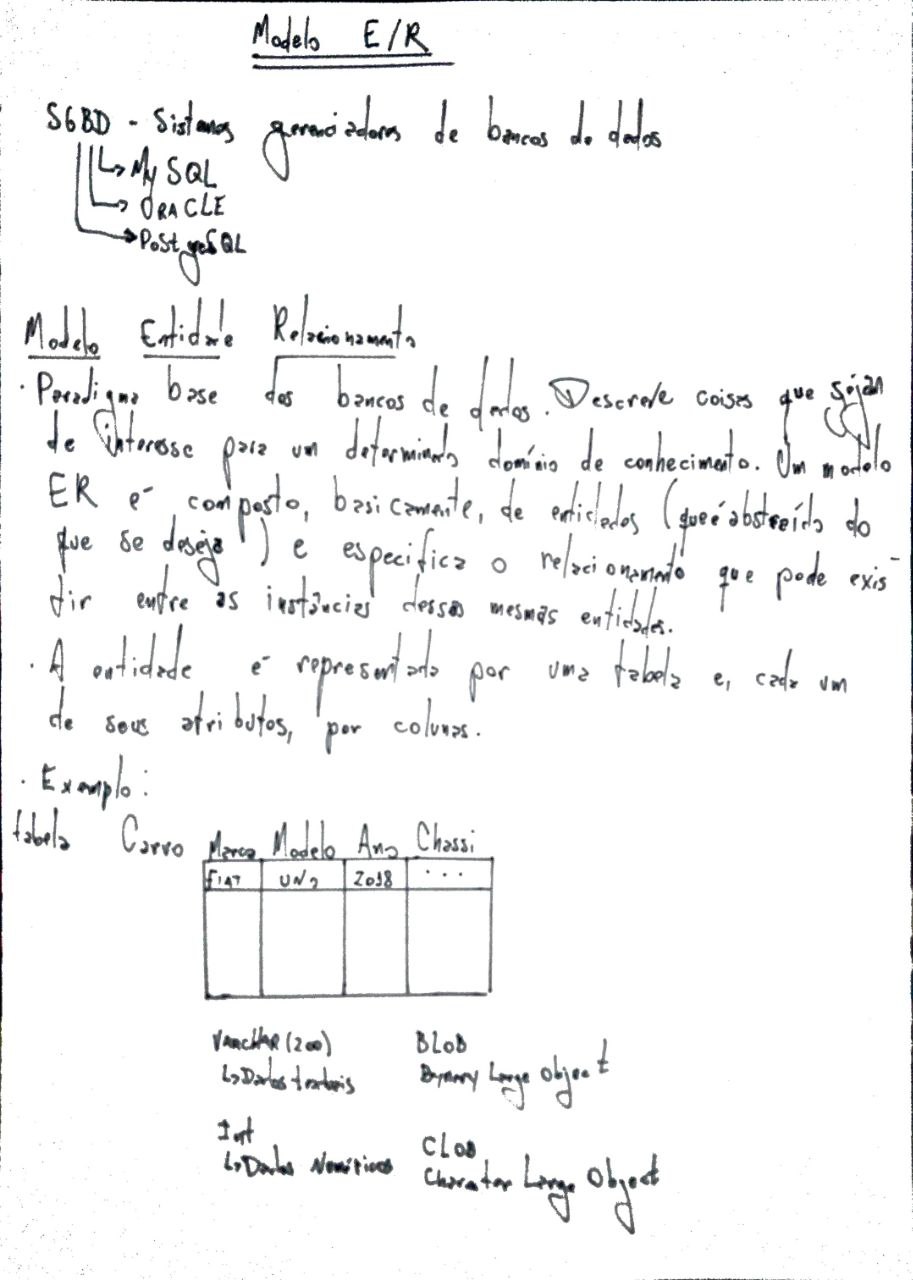 Modelo E/R
SGBD - Sistemas gerenciadores de bancos de dados
MySQL
ORACLE
PostgreSQL
Modelo Entidade Relacionamento
· Paradigma base dos bancos de dados. Descreve coisas que sejam
de interesse para um determinado domínio de conhecimento. Um modelo
ER é composto, basicamente, de entidades (que é abstraído do
que se deseja) e especifica o relacionamento que pode exis-
tir entre as instâncias dessas mesmas entidades.
· A entidade é representada por uma tabela e, cada um
de seus atributos, por colunas.
· Exemplo:
tabela Carro Marca Modelo Ano Chassi
FIAT UNO 2018 ...
VARCHAR(200) BLOB
Dados textuais Bynary Large Object
Int CLOB
Dados Numéricos Charater Large Object